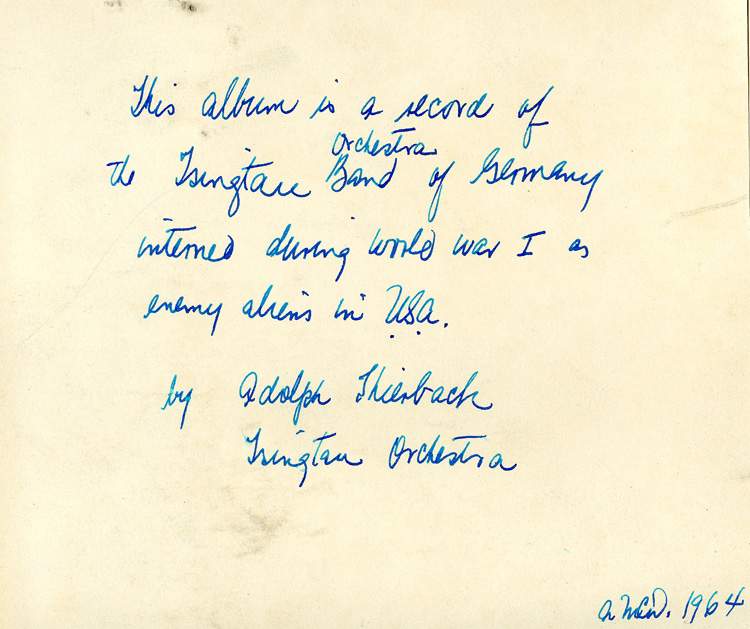 This album is a record of
Orchestra
the Tsingtau Band of Germany
interned during World War I as
enemy aliens in USA.
by Adolph Thierbach
Tsingtau Orchestra
1964